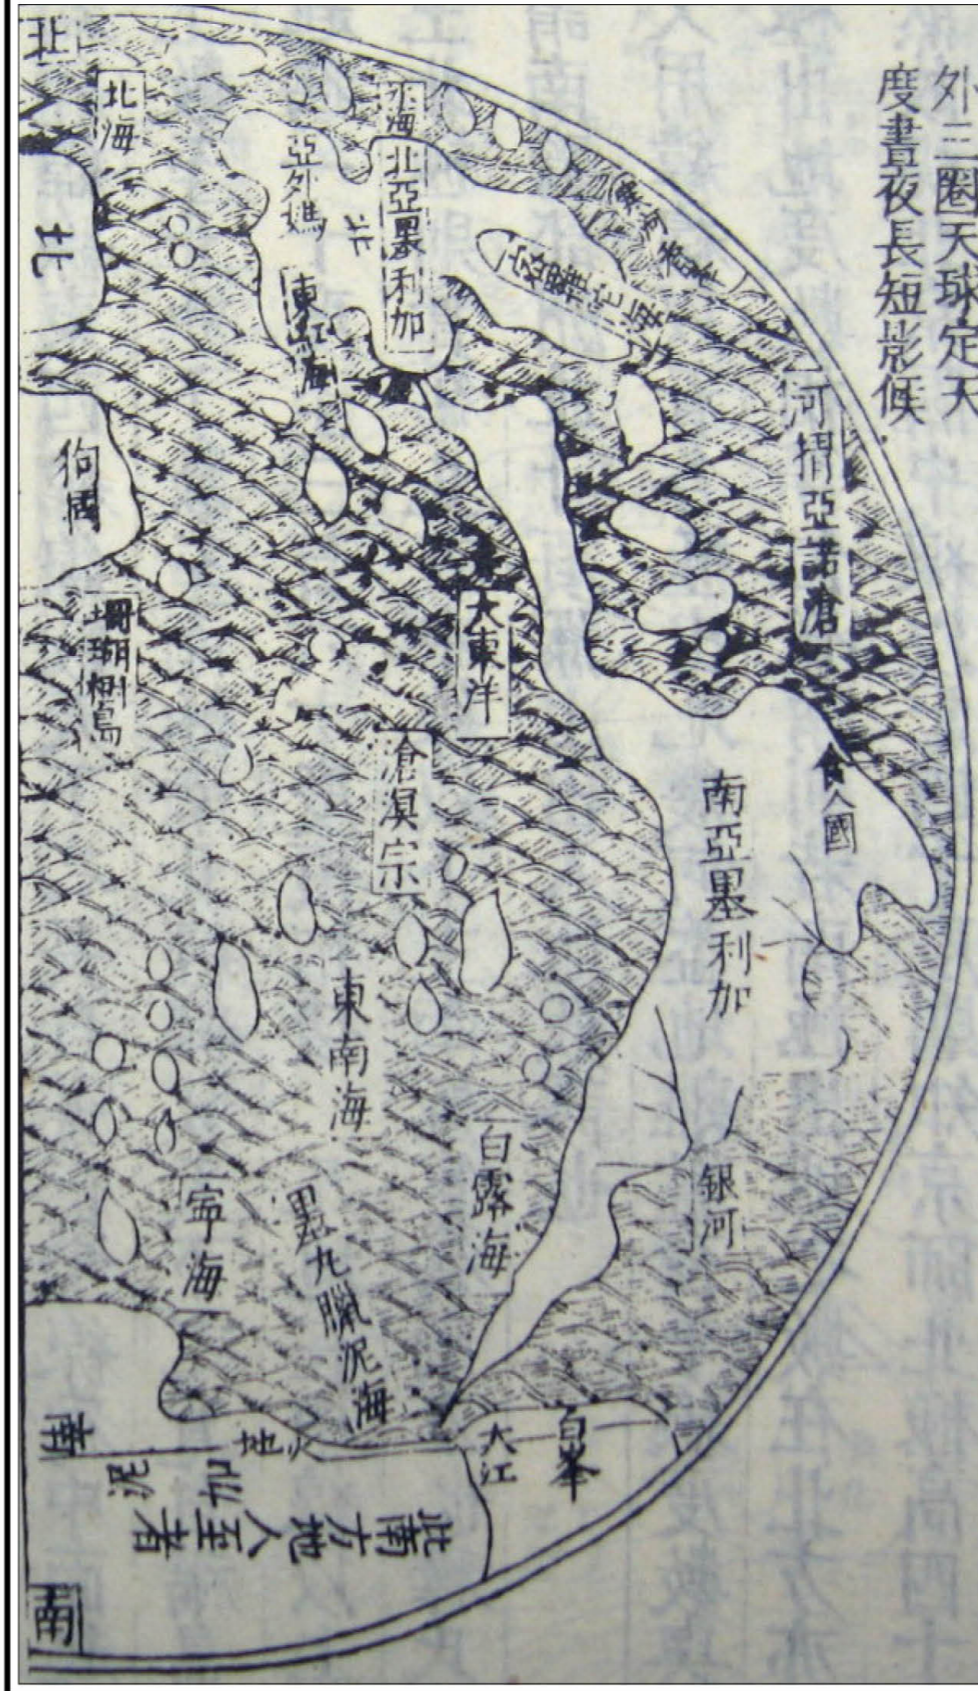 外三圈天球定天
度晝夜長短影候
北
北海
冰海
北亞墨利加
亞外媽
北
東紅海
北
河摺亞諾滄
狗國
珊瑚樹島
大東洋
滄溟宗
食人國
南亞墨利加
東南海
白露海
銀河
寧海
墨九臘泥海
白峯
大江
南
地
泥
此南方地人至者
南